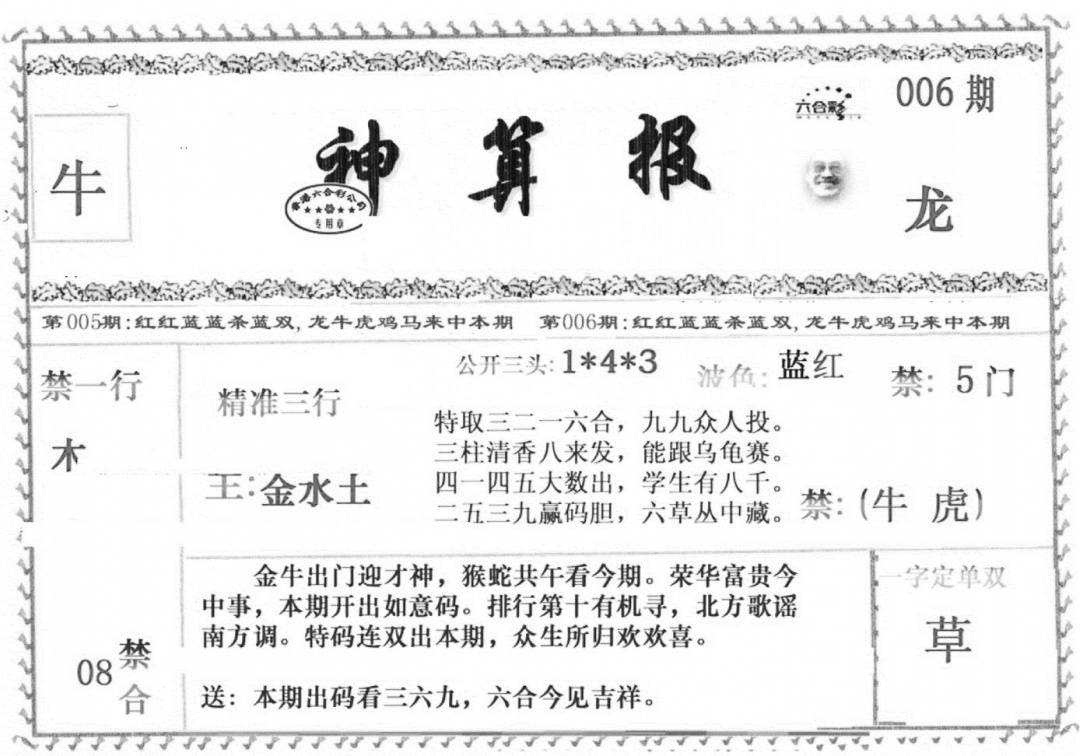 006期
六合彩
牛
神算报
香港六合彩公司
专用章
龙
第005期:红红蓝蓝杀蓝双,龙牛虎鸡马来中本期 第006期:红红蓝蓝杀蓝双,龙牛虎鸡马来中本期
禁一行
木
精准三行
王:金水土
公开三头:1*4*3 波色:蓝红 禁:5门
特取三二一六合,九九众人投。
三柱清香八来发,能跟乌龟赛。
四一四五大数出,学生有八千。
二五三九赢码胆,六草丛中藏。
禁:(牛 虎)
08禁合
金牛出门迎才神,猴蛇共午看今期。荣华富贵今
中事,本期开出如意码。排行第十有机寻,北方歌谣
南方调。特码连双出本期,众生所归欢欢喜。
送:本期出码看三六九,六合今见吉祥。
一字定单双
草